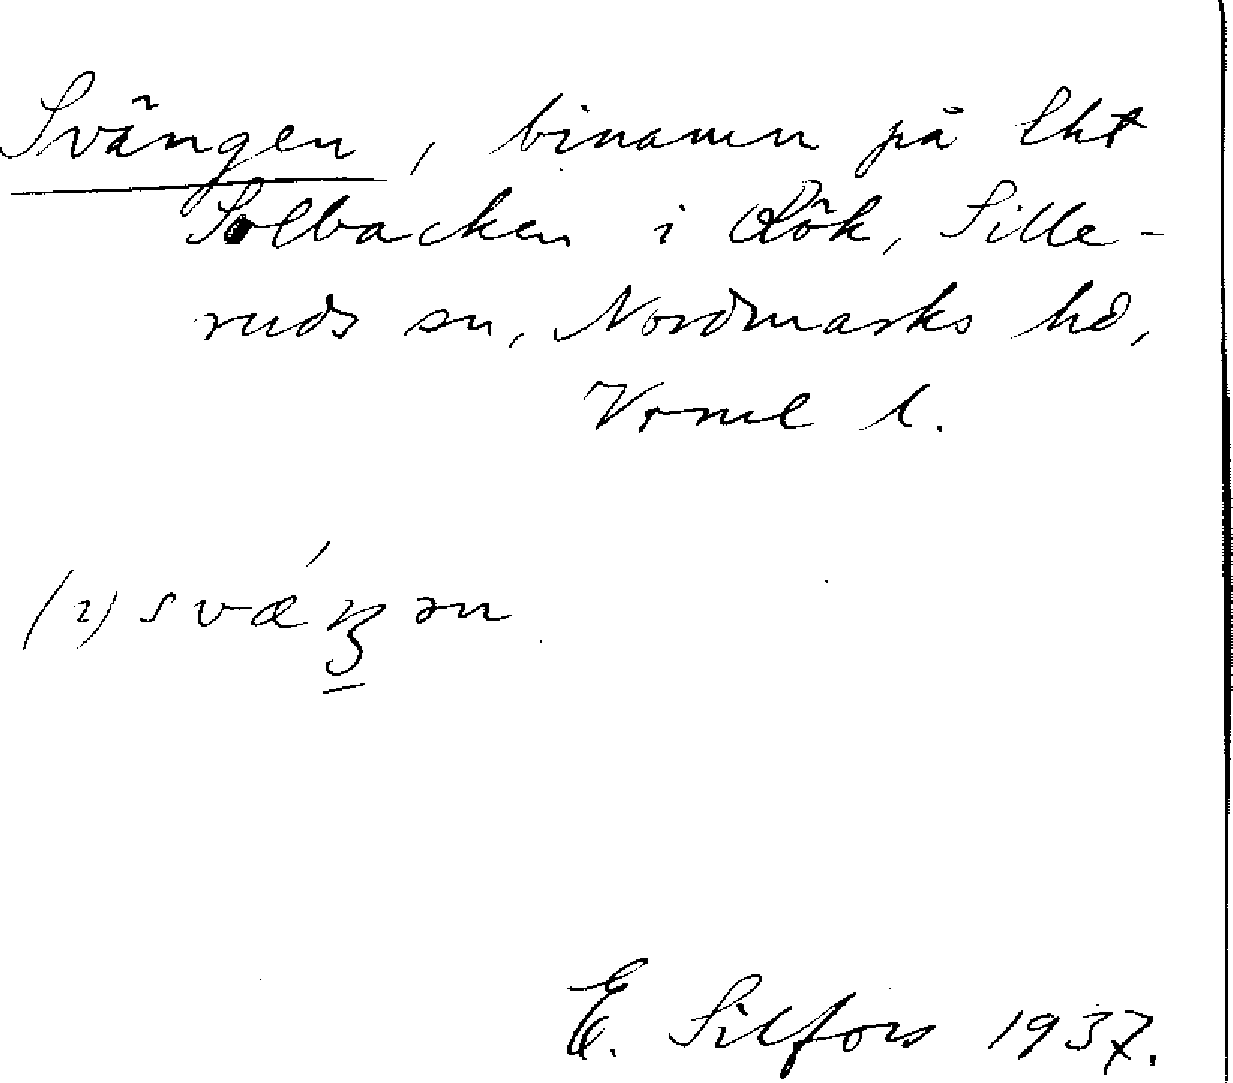 Svängen, binamn på lht
Solbacken i Rök, Sille-
ruds sn, Nordmarks hd,
Vrml l.
(2) svǽŋən
E. Silfors 1937.